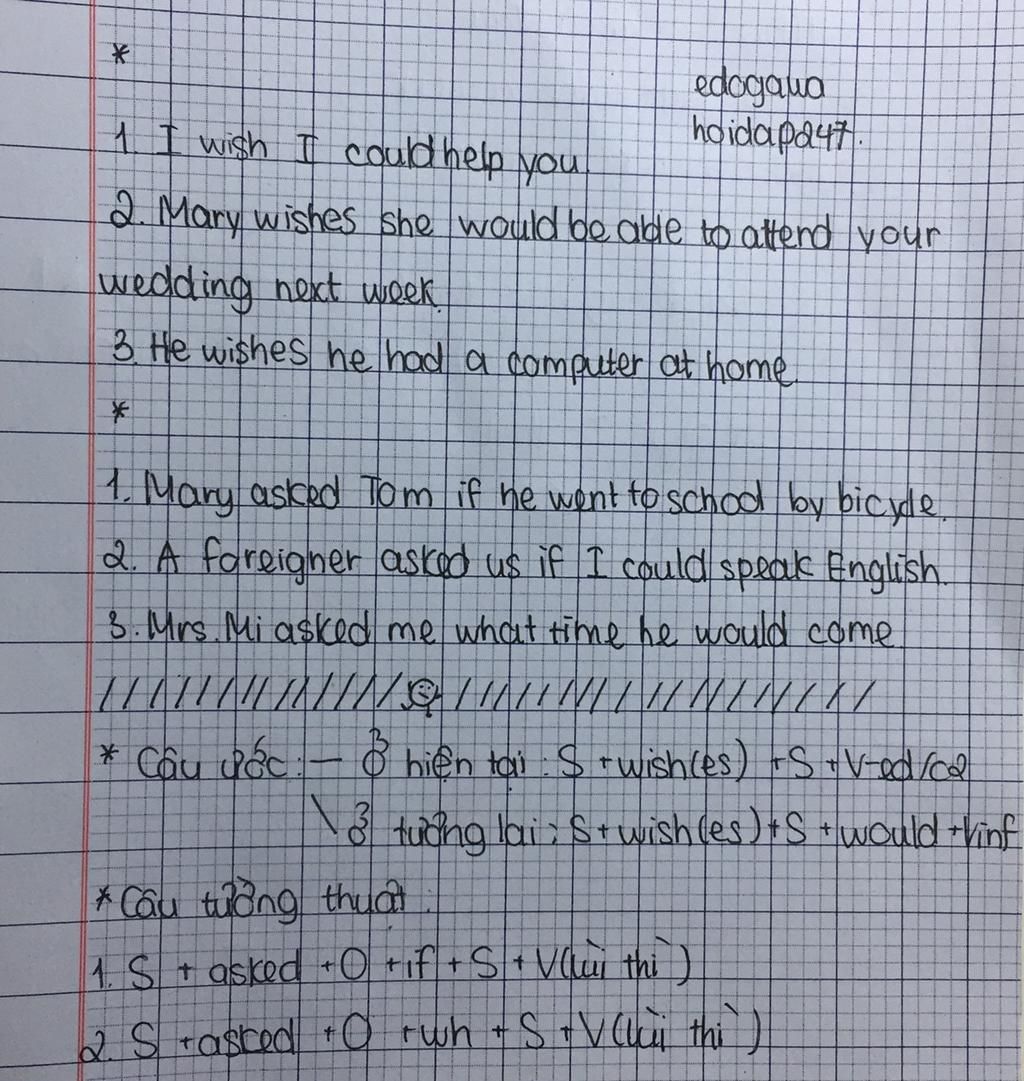 *
edogawa
hoidap247.
1. I wish I could help you
2. Mary wishes she would be able to attend your
wedding next week.
3. He wishes he had a computer at home
*
1. Mary asked Tom if he went to school by bicycle.
2. A foreigner asked us if I could speak English.
3. Mrs. Mi asked me what time he would come
//////////////////////////////
* Câu ước: – Ở hiện tại: S + wish(es) + S + V-ed/c2
\ ở tương lai: S + wish(es) + S + would + Vinf
* Câu tường thuật.
1. S + asked + O + if + S + V(lùi thì)
2. S + asked + O + wh + S + V(lùi thì)